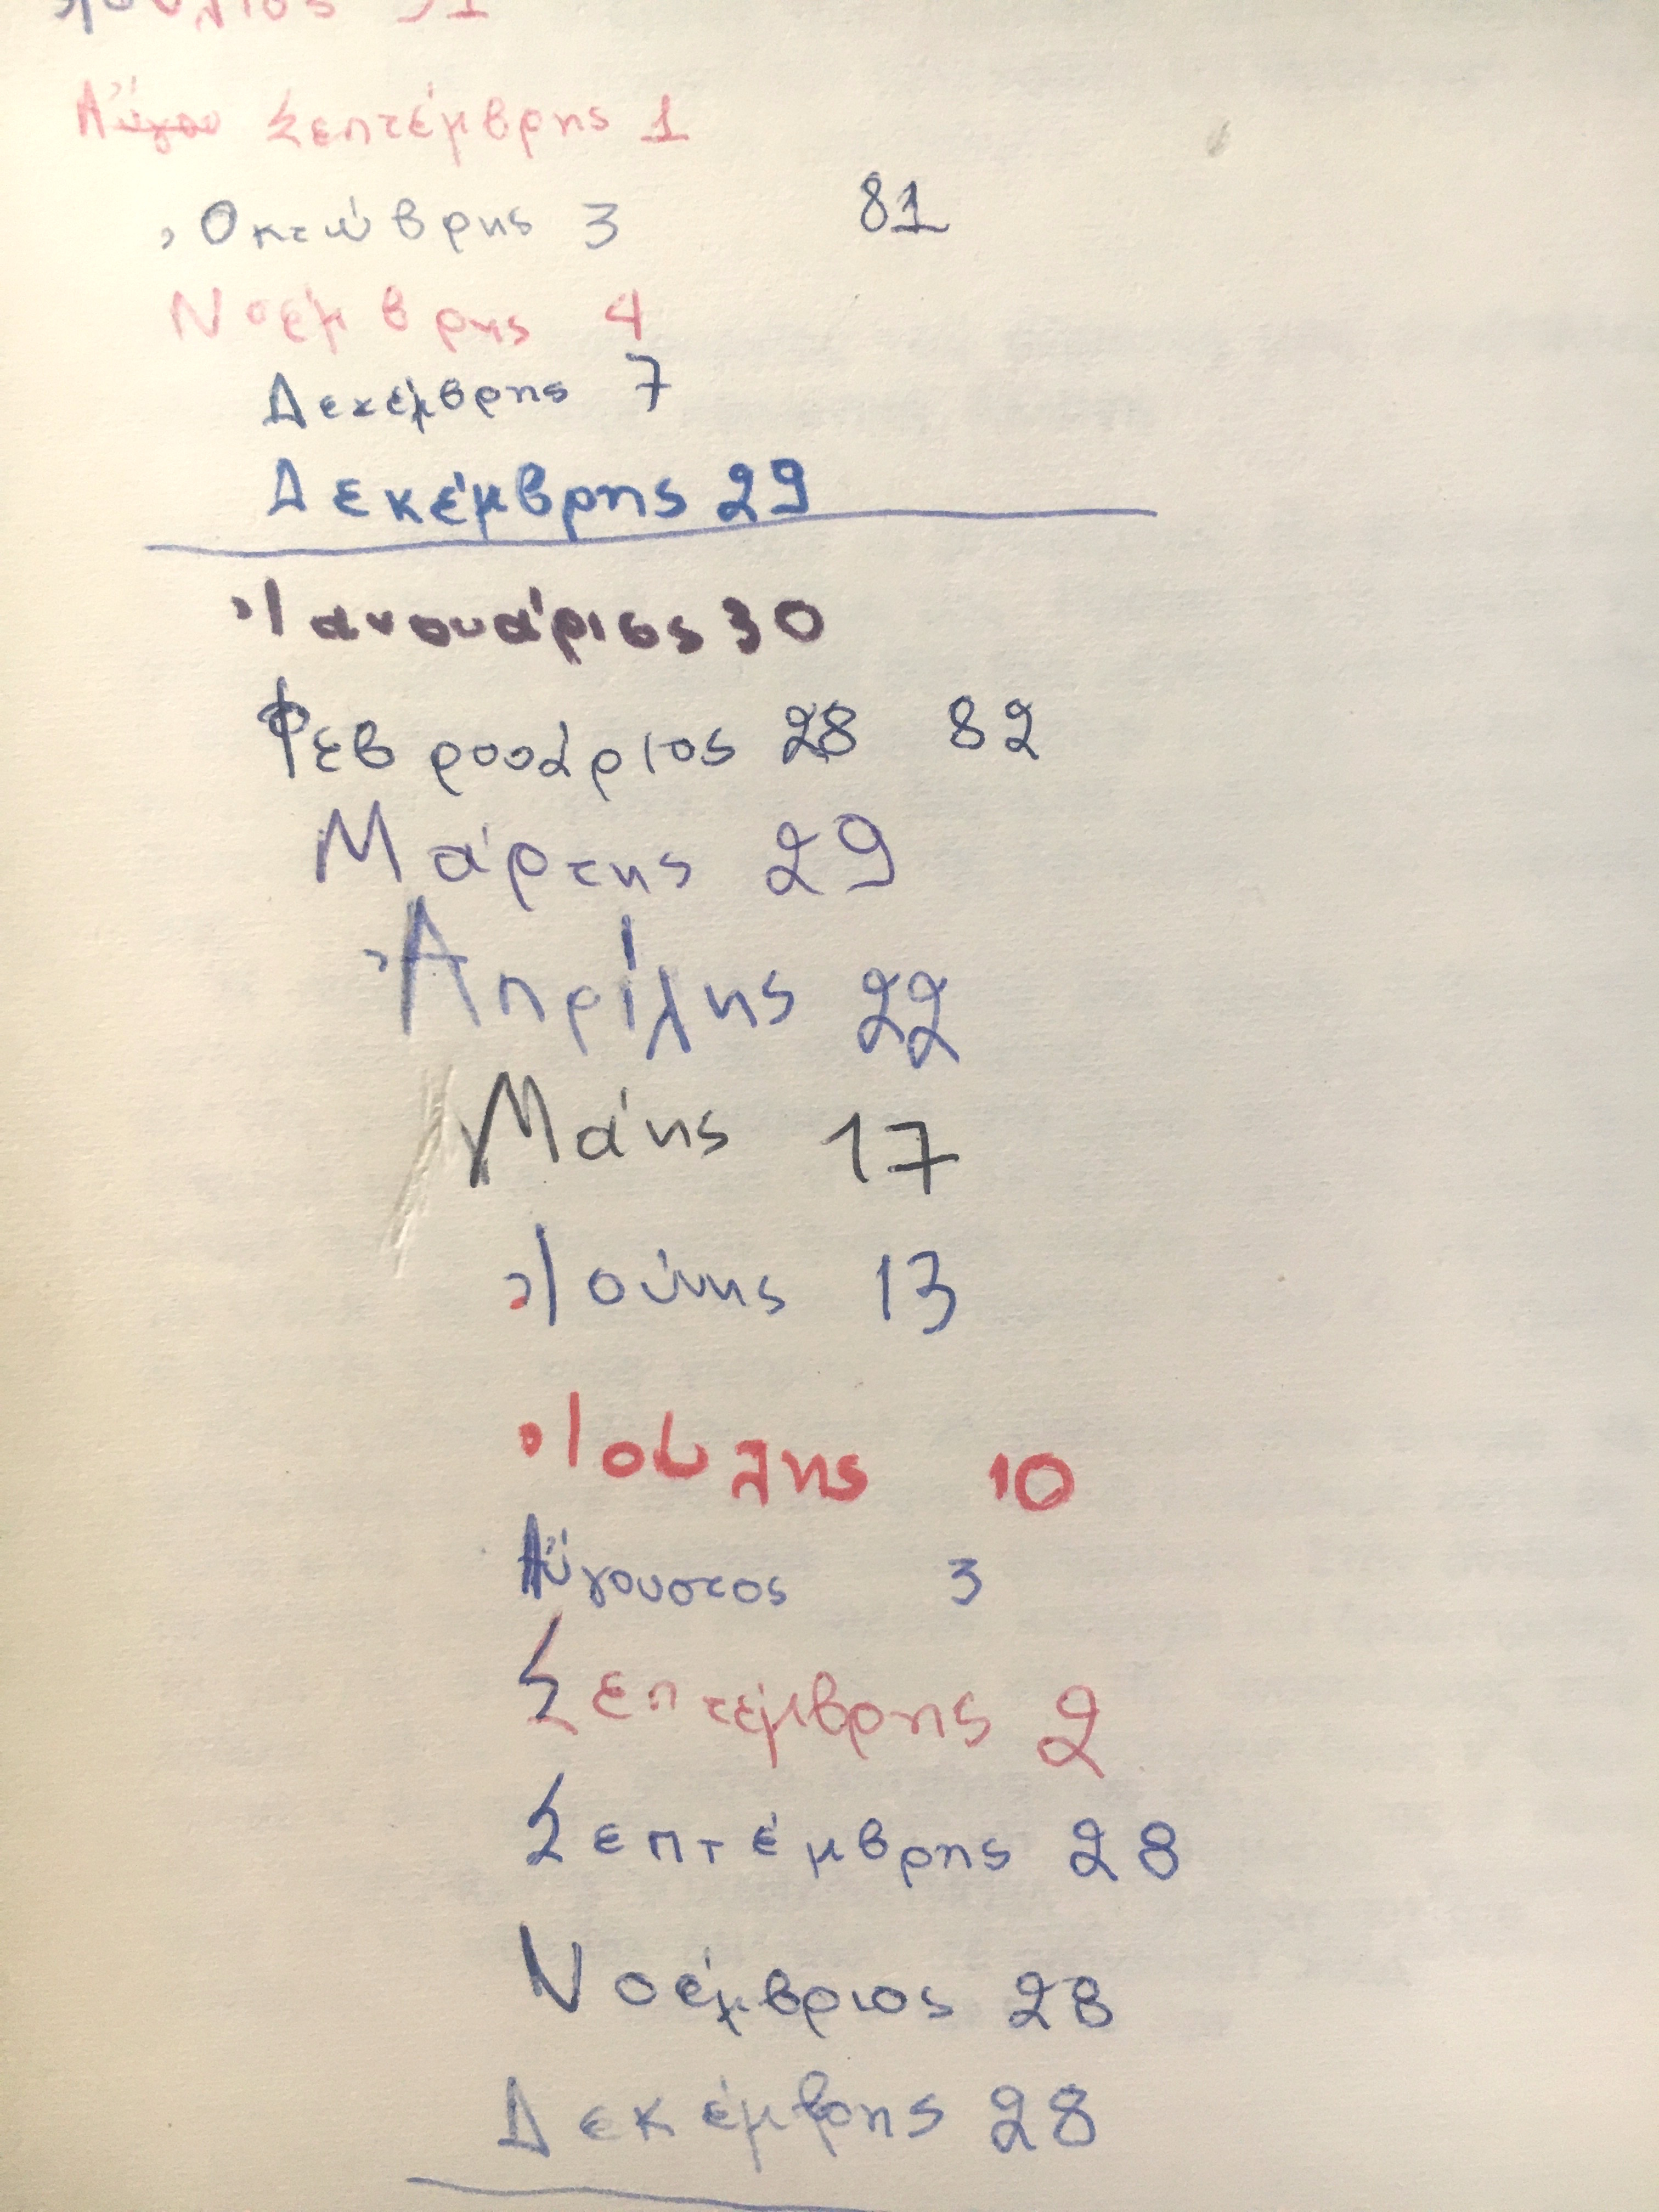 Ἰούλιος 31
Αὔγου Σεπτέμβρης 1
Ὀκτώβρης 3 81
Νοέμβρης 4
Δεκέμβρης 7
Δεκέμβρης 29
Ἰανουάριος 30
Φεβρουάριος 28 82
Μάρτης 29
Ἀπρίλης 22
Μάης 17
Ἰούνης 13
Ἰούλης 10
Αὔγουστος 3
Σεπτέμβρης 2
Σεπτέμβρης 28
Νοέμβριος 28
Δεκέμβρης 28